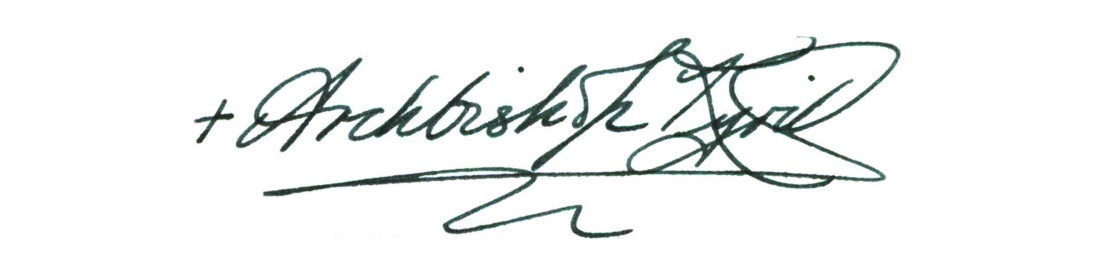 + Archbishop Kyril